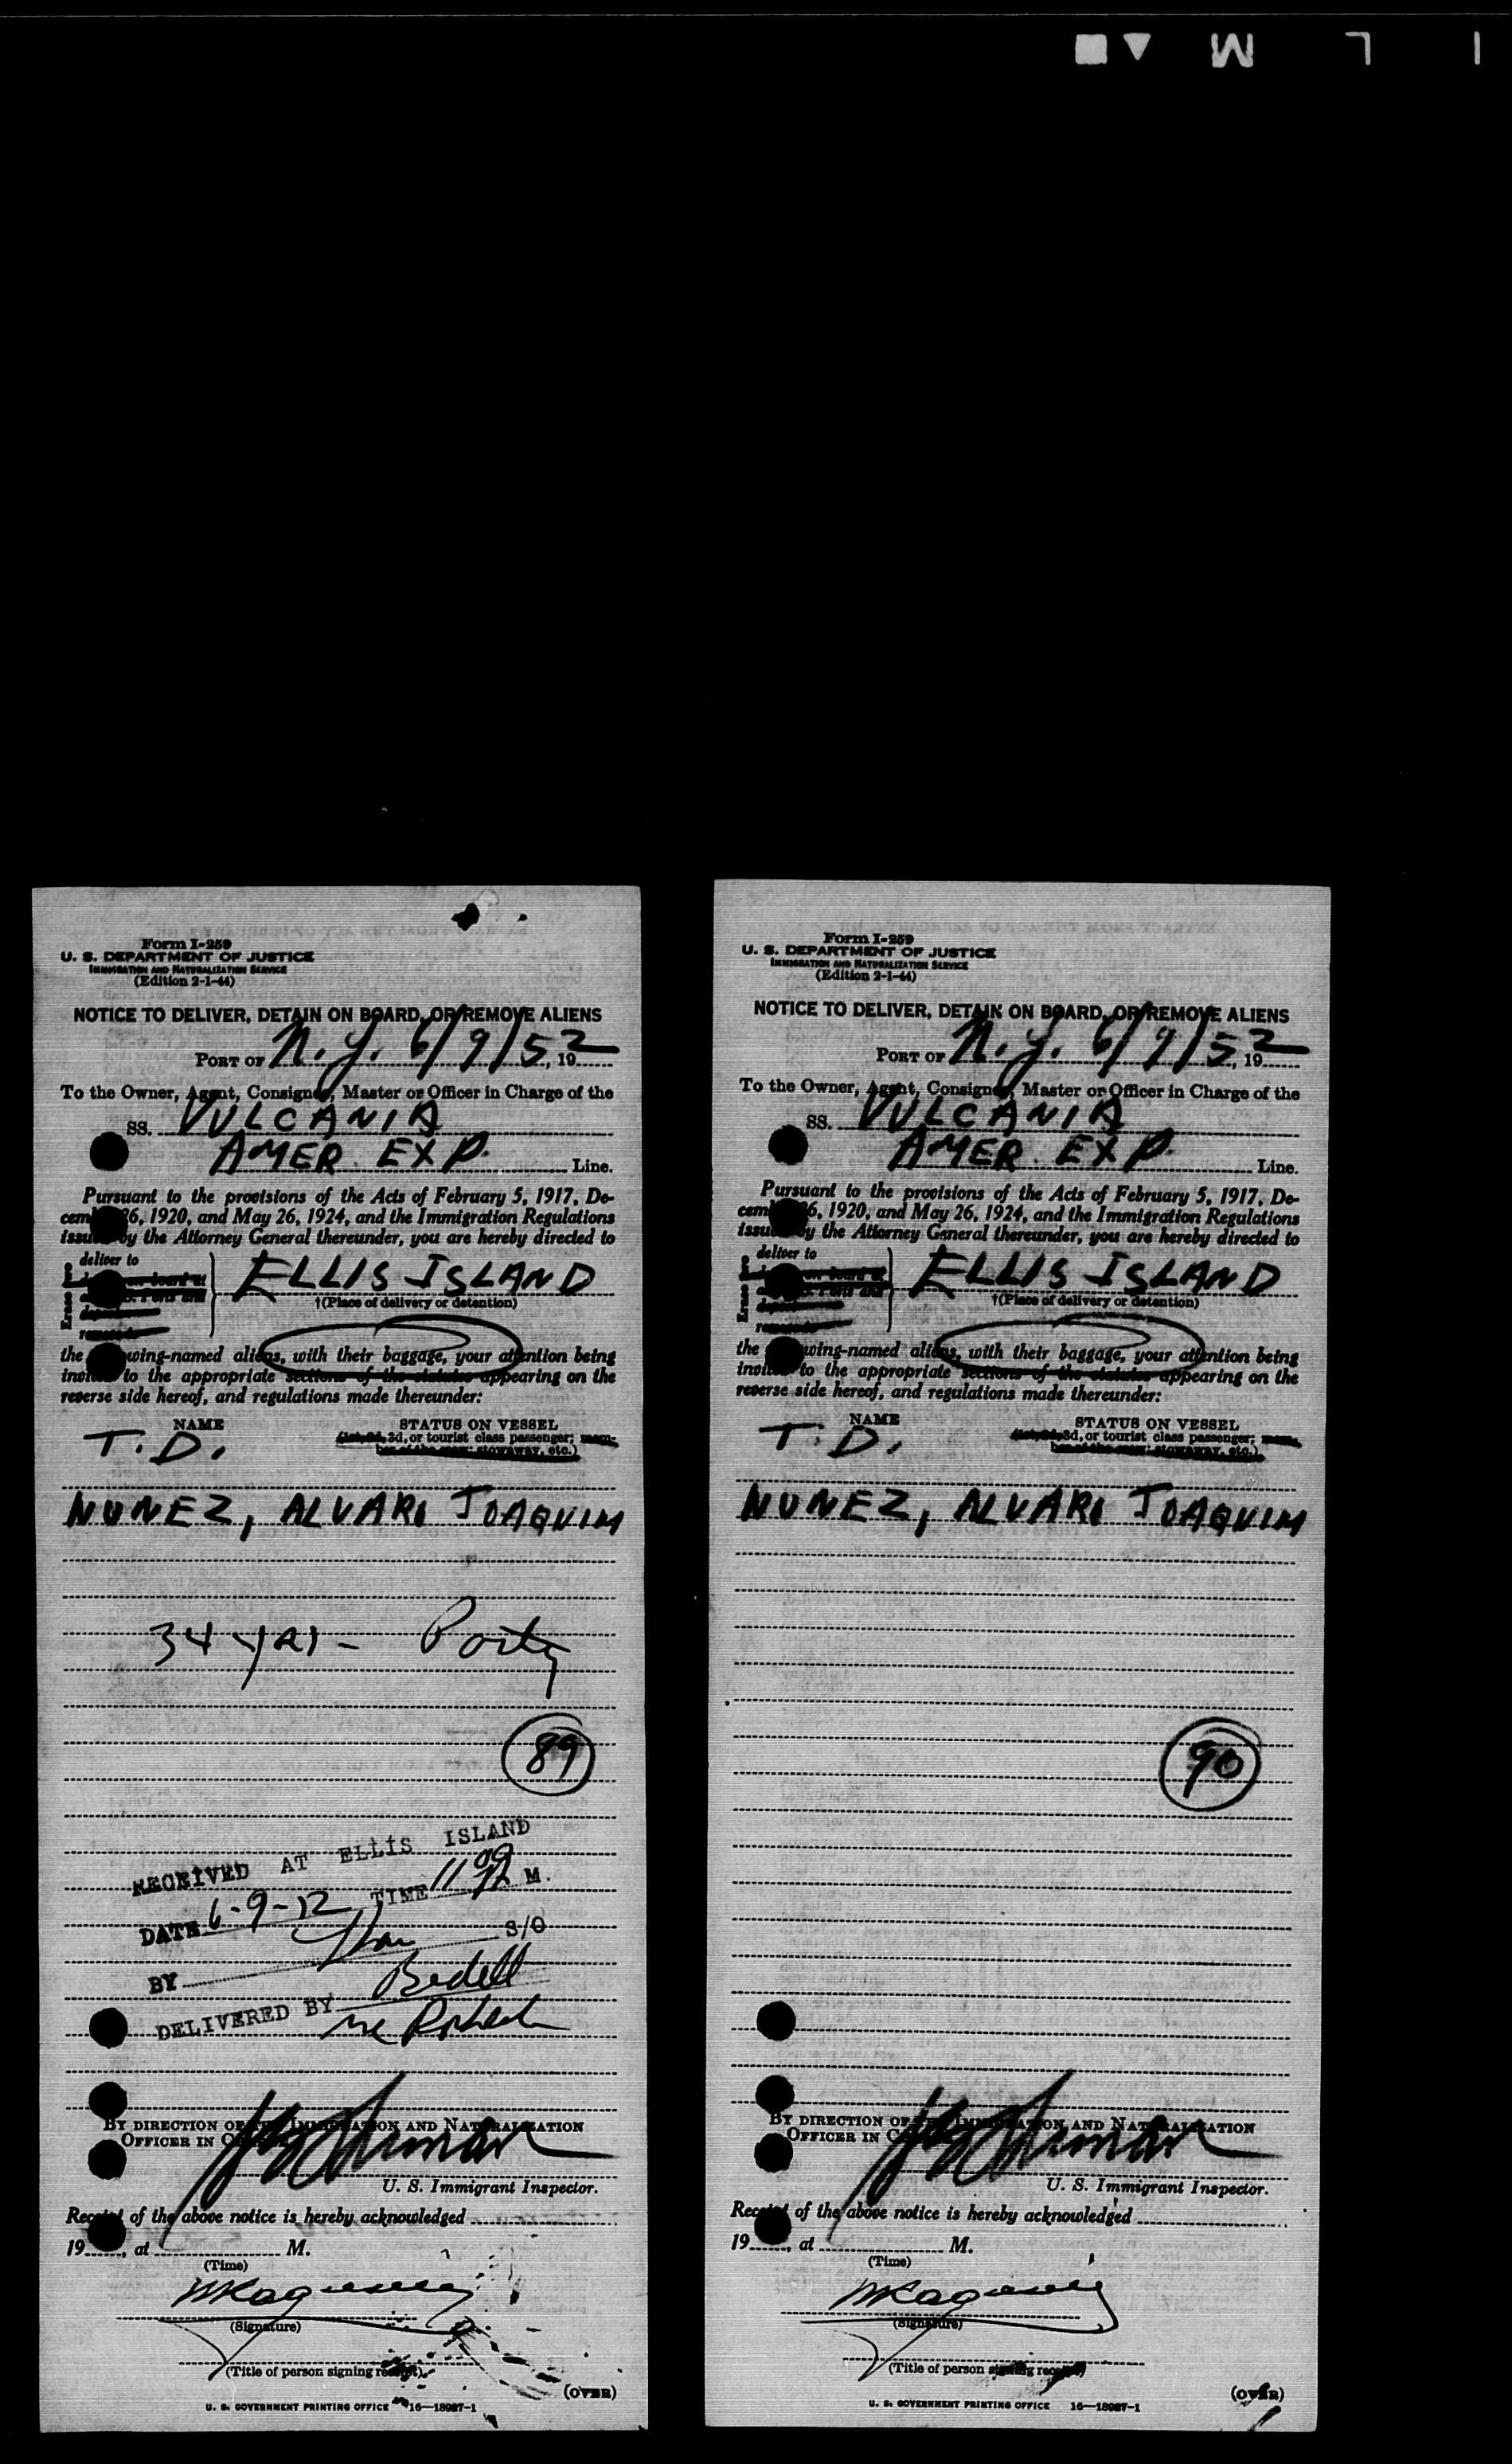 Form I-259
U. S. DEPARTMENT OF JUSTICE
IMMIGRATION AND NATURALIZATION SERVICE
(Edition 2-1-44)
NOTICE TO DELIVER, DETAIN ON BOARD, OR REMOVE ALIENS
PORT OF N.Y. 6/9/52, 19
To the Owner, Agent, Consignee, Master or Officer in Charge of the
SS. VULCANIA
AMER EXP. Line.
Pursuant to the provisions of the Acts of February 5, 1917, De-
cem 26, 1920, and May 26, 1924, and the Immigration Regulations
issued by the Attorney General thereunder, you are hereby directed to
deliver to
on board at
ELLIS ISLAND
†(Place of delivery or detention)
the wing-named aliens, with their baggage, your attention being
invited to the appropriate sections of the statutes appearing on the
reverse side hereof, and regulations made thereunder:
NAME STATUS ON VESSEL
3d, or tourist class passenger; mem-
ber of the crew; stowaway, etc.)
T. D.
NUNEZ, ALVARI JOAQUIM
34 yrs -
89
RECEIVED AT ELLIS ISLAND
DATE 6-9-52 TIME 11 M.
BY S/O
DELIVERED BY Bedell
BY DIRECTION OF THE IMMIGRATION AND NATURALIZATION
OFFICER IN C
U. S. Immigrant Inspector.
Receipt of the above notice is hereby acknowledged
19, at M.
(Time)
(Signature)
(Title of person signing receipt)
(OVER)
U. S. GOVERNMENT PRINTING OFFICE 16—18987-1
Form I-259
U. S. DEPARTMENT OF JUSTICE
IMMIGRATION AND NATURALIZATION SERVICE
(Edition 2-1-44)
NOTICE TO DELIVER, DETAIN ON BOARD, OR REMOVE ALIENS
PORT OF N.Y. 6/9/52, 19
To the Owner, Agent, Consignee, Master or Officer in Charge of the
SS. VULCANIA
AMER EXP. Line.
Pursuant to the provisions of the Acts of February 5, 1917, De-
cem 26, 1920, and May 26, 1924, and the Immigration Regulations
issued by the Attorney General thereunder, you are hereby directed to
deliver to
ELLIS ISLAND
†(Place of delivery or detention)
the wing-named aliens, with their baggage, your attention being
invited to the appropriate sections of the statutes appearing on the
reverse side hereof, and regulations made thereunder:
NAME STATUS ON VESSEL
3d, or tourist class passenger; mem-
ber of the crew; stowaway, etc.)
T. D.
NUNEZ, ALVARI JOAQUIM
90
BY DIRECTION OF THE IMMIGRATION AND NATURALIZATION
OFFICER IN C
U. S. Immigrant Inspector.
Receipt of the above notice is hereby acknowledged
19, at M.
(Time)
(Signature)
(Title of person signing receipt)
(OVER)
U. S. GOVERNMENT PRINTING OFFICE 16—18987-1